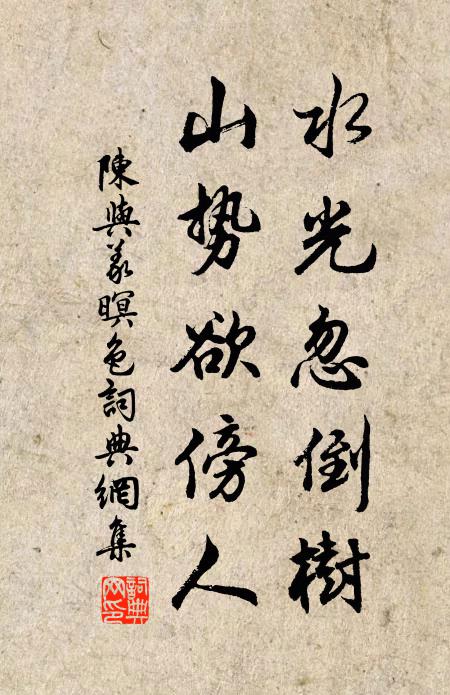 水光忽倒樹
山势欲傍人
陳與義暝色詞典網集
詞典网印